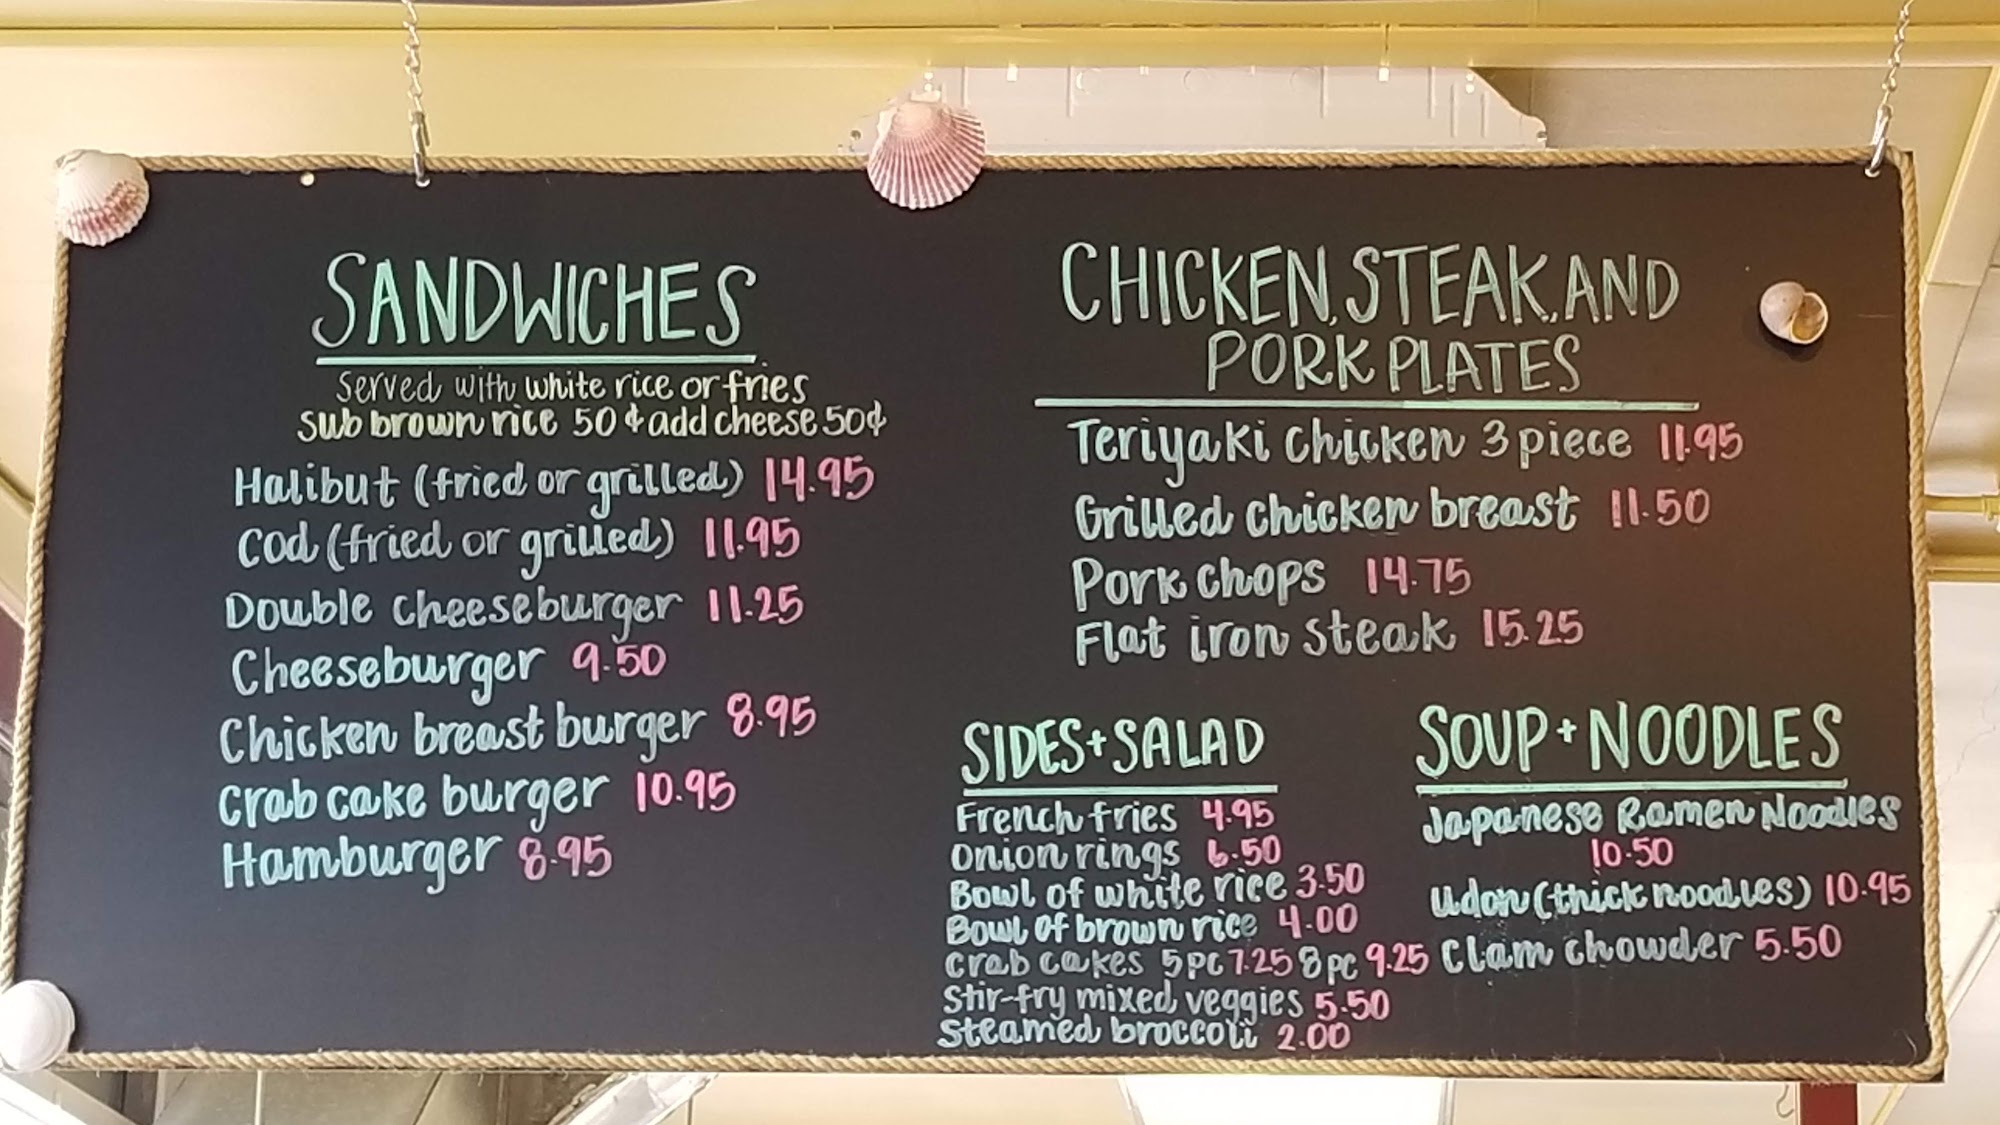 SANDWICHES
served with white rice or fries
sub brown rice 50¢ add cheese 50¢
Halibut (fried or grilled) 14.95
Cod (fried or grilled) 11.95
Double cheeseburger 11.25
Cheeseburger 9.50
Chicken breast burger 8.95
Crab cake burger 10.95
Hamburger 8.95
CHICKEN, STEAK, AND
PORK PLATES
Teriyaki chicken 3 piece 11.95
Grilled chicken breast 11.50
Pork chops 14.75
Flat iron steak 15.25
SIDES + SALAD
French fries 4.95
Onion rings 6.50
Bowl of white rice 3.50
Bowl of brown rice 4.00
Crab cakes 5pc 7.25 8pc 9.25
Stir-fry mixed veggies 5.50
Steamed broccoli 2.00
SOUP + NOODLES
Japanese Ramen Noodles
10.50
Udon (thick noodles) 10.95
Clam chowder 5.50